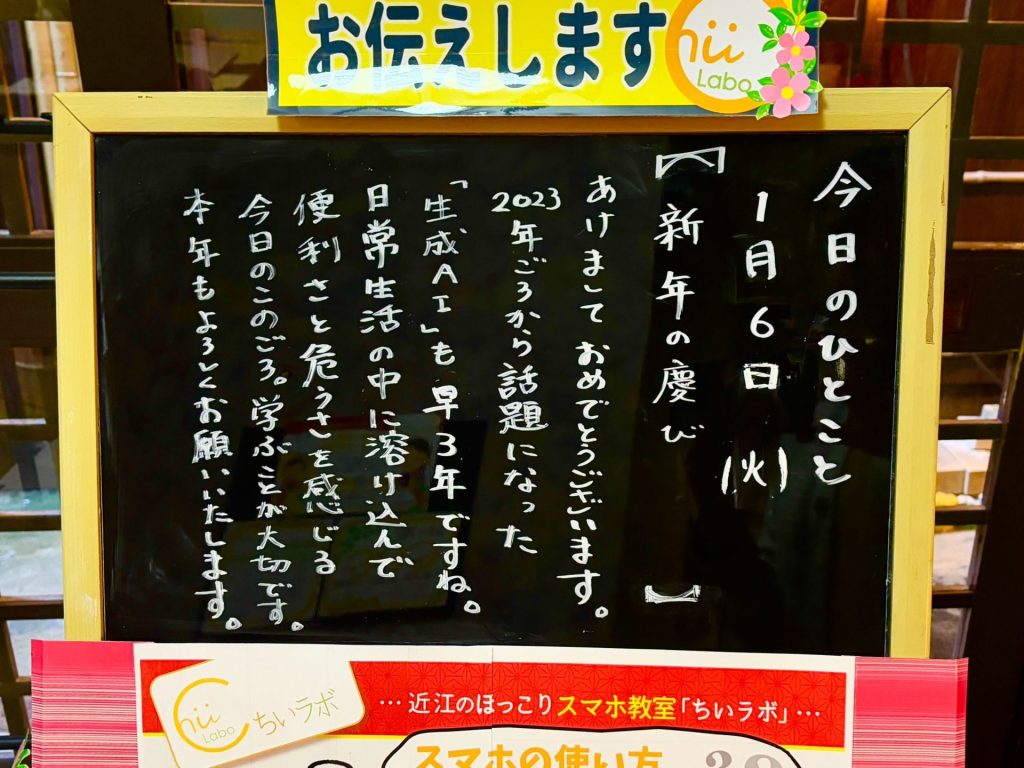 お伝えします
Chii
Labo
今日のひとこと
1月6日(火)
【新年の慶び】
あけまして おめでとうございます。
2023年ごろから話題になった
「生成AI」も早3年ですね。
日常生活の中に溶け込んで
便利さと危うさを感じる
今日このごろ。学ぶことが大切です。
本年もよろしくお願いいたします。
Chii
Labo
ちいラボ
…近江のほっこりスマホ教室「ちいラボ」…
スマホの使い方